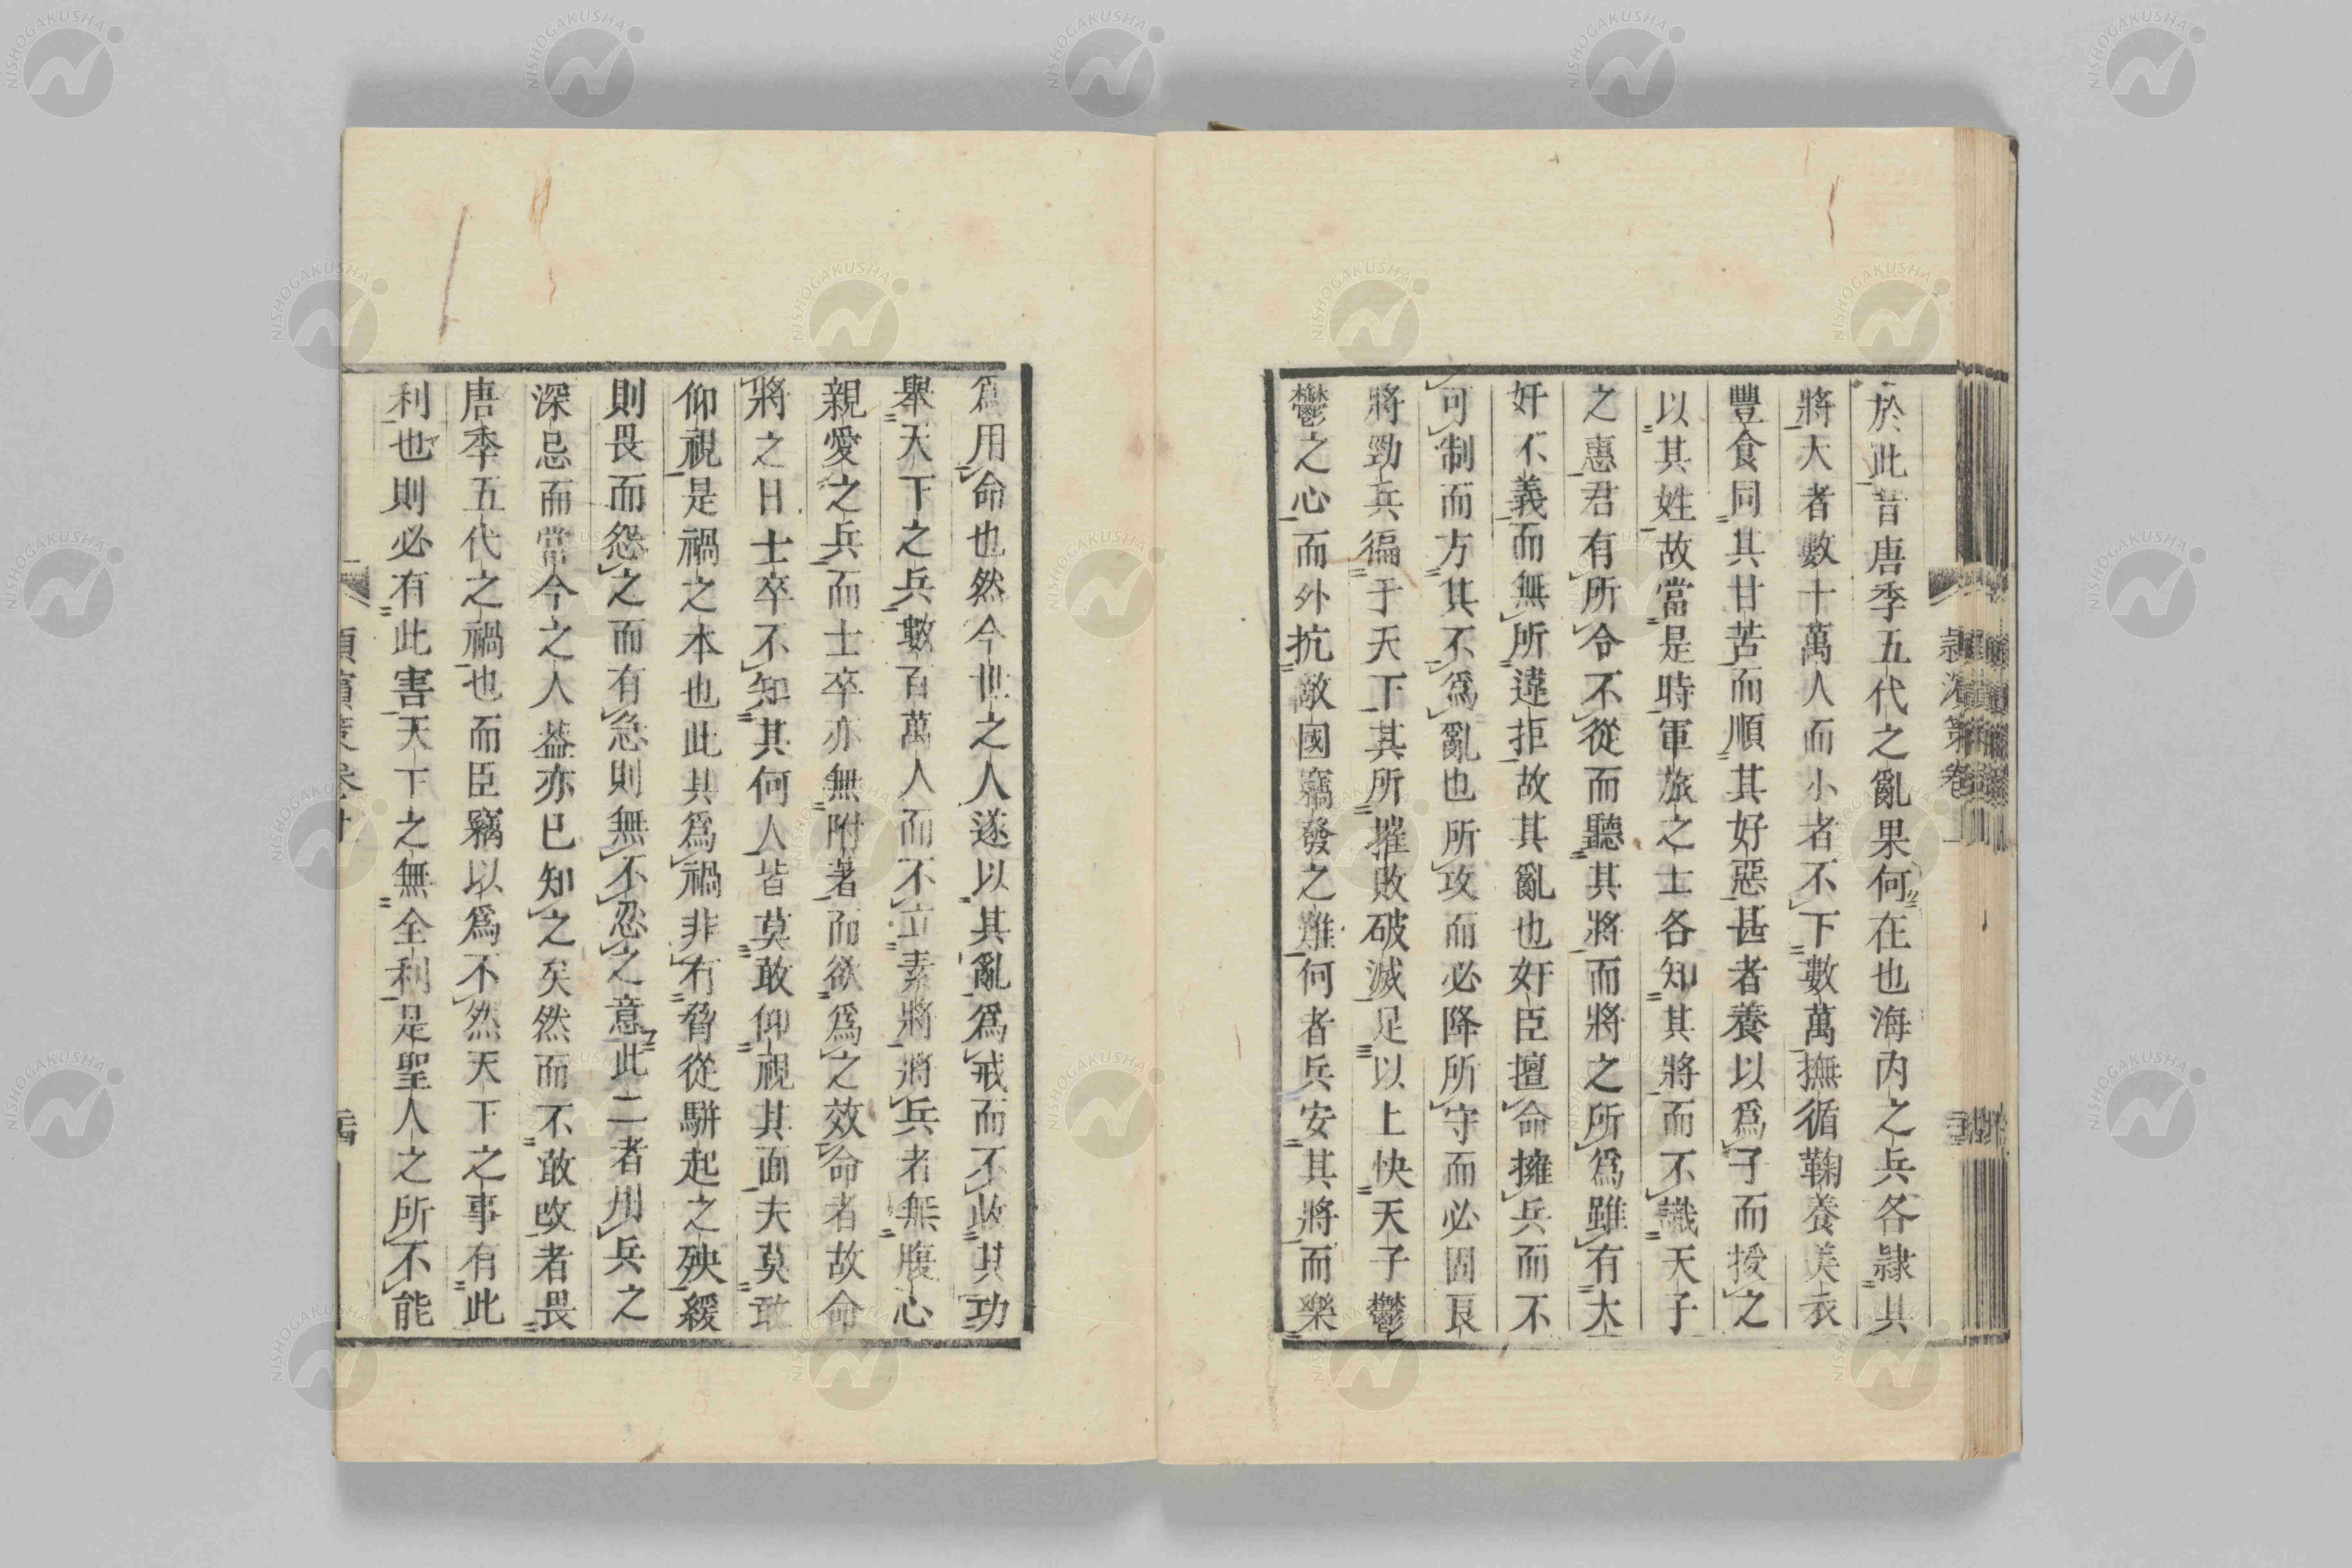 於此昔唐季五代之亂果何在也海内之兵各隷其
將大者數十萬人而小者不下數萬撫循鞠養美衣
豐食同其甘苦而順其好惡甚者養以爲子而授之
以其姓故當是時軍旅之士各知其將而不識天子
之惠君有所令不從而聽其將而將之所爲雖有大
奸不義而無所違拒故其亂也奸臣擅命擁兵而不
可制而方其不爲亂也所攻而必降所守而必固良
將勁兵徧于天下其所摧敗破滅足以上快天子鬱
鬱之心而外抗敵國竊發之難何者兵安其將而樂
爲用命也然今世之人遂以其亂爲戒而不收其功
舉天下之兵數百萬人而不立素將將兵者無腹心
親愛之兵而士卒亦無附著而欲爲之效命者故命
將之日士卒不知其何人皆莫敢仰視其面夫莫敢
仰視是禍之本也此其爲禍非有脅從駢起之殃緩
則畏而怨之而有急則無不忍之意此二者用兵之
深忌而當今之人葢亦已知之矣然而不敢改者畏
唐季五代之禍也而臣竊以爲不然天下之事有此
利也則必有此害天下之無全利是聖人之所不能
NISHOGAKUSHA